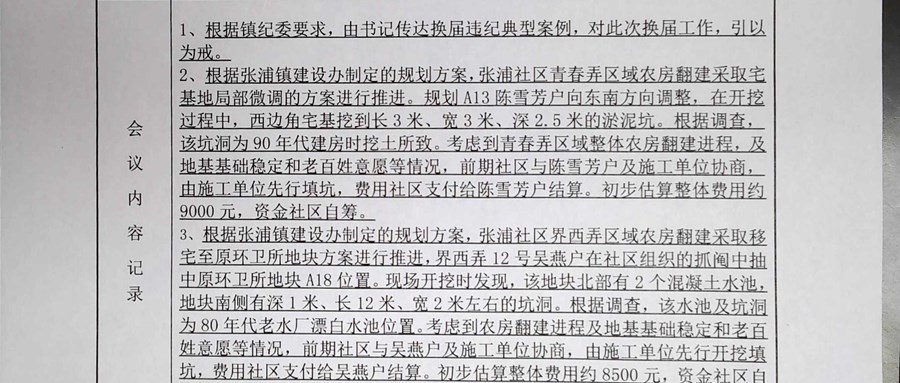 会议内容记录
1、根据镇纪委要求，由书记传达换届违纪典型案例，对此次换届工作，引以
为戒。
2、根据张浦镇建设办制定的规划方案，张浦社区青春弄区域农房翻建采取宅
基地局部微调的方案进行推进。规划 A13 陈雪芳户向东南方向调整，在开挖
过程中，西边角宅基挖到长 3 米、宽 3 米、深 2.5 米的淤泥坑。根据调查，
该坑洞为 90 年代建房时挖土所致。考虑到青春弄区域整体农房翻建进程，及
地基基础稳定和老百姓意愿等情况，前期社区与陈雪芳户及施工单位协商，
由施工单位先行填坑，费用社区支付给陈雪芳户结算。初步估算整体费用约
9000 元，资金社区自筹。
3、根据张浦镇建设办制定的规划方案，张浦社区界西弄区域农房翻建采取移
宅至原环卫所地块方案进行推进，界西弄 12 号吴燕户在社区组织的抓阄中抽
中原环卫所地块 A18 位置。现场开挖时发现，该地块北部有 2 个混凝土水池，
地块南侧有深 1 米、长 12 米、宽 2 米左右的坑洞。根据调查，该水池及坑洞
为 80 年代老水厂漂白水池位置。考虑到农房翻建进程及地基基础稳定和老百
姓意愿等情况，前期社区与吴燕户及施工单位协商，由施工单位先行开挖填
坑，费用社区支付给吴燕户结算。初步估算整体费用约 8500 元，资金社区自